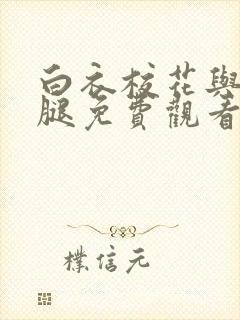 白衣校花與
腿免費觀看
樸信元